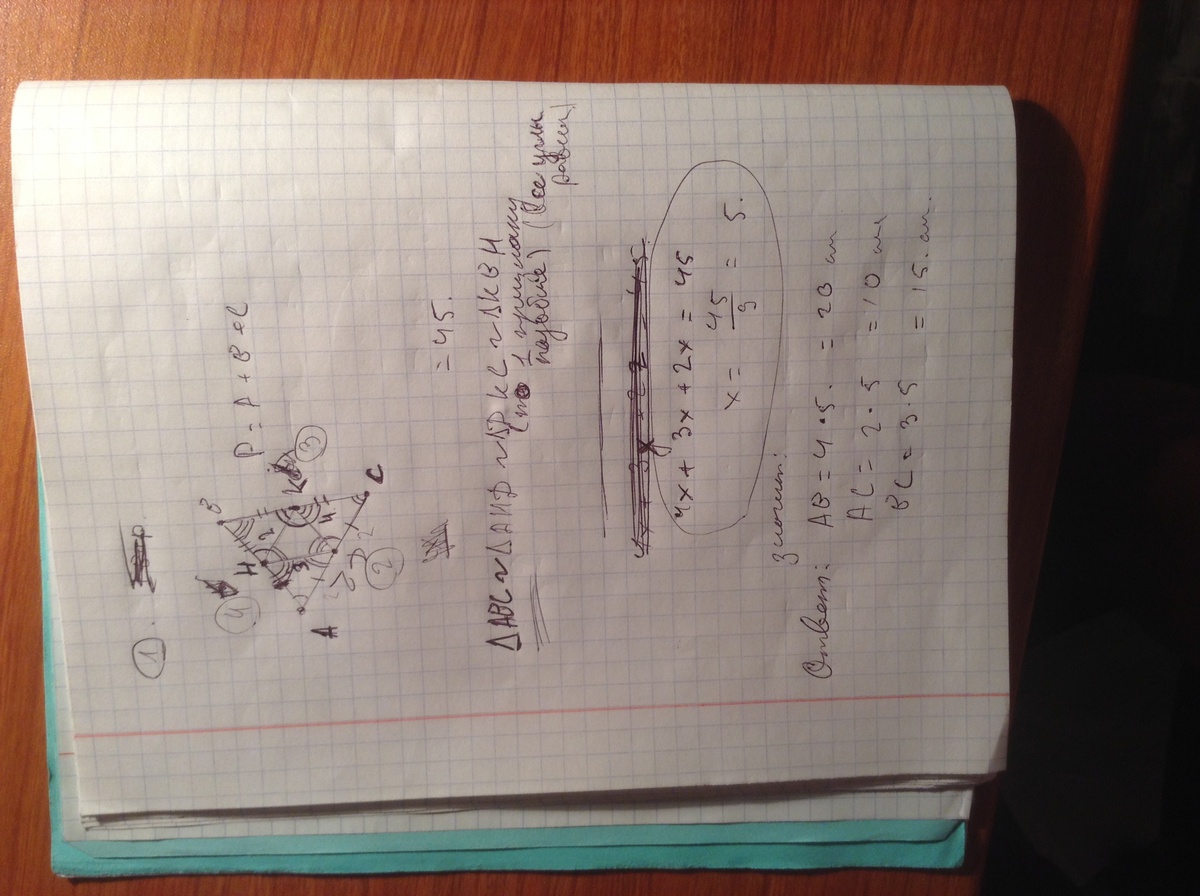 1.
B
4
H
2
K
3
3
4
A
D
2
C
P = A + B + C
= 45.
ΔABC ~ ΔAHD ~ ΔDKC ~ ΔKBH
(по 1 признаку (все углы
подобие) равны)
4x + 3x + 2x = 45
x = 45/9 = 5.
Значит:
Ответ: AB = 4 · 5. = 20 см
AC = 2 · 5 = 10 см
BC = 3 · 5 = 15. см.